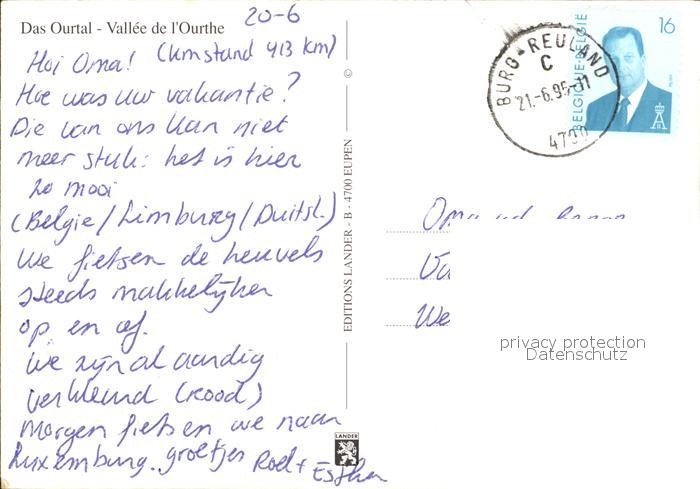 20-6
Das Ourtal - Vallée de l'Ourthe
Hoi Oma! (kmstand 413 km)
Hoe was uw vakantie?
Die van ons kan niet
meer stuk: het is hier
zo mooi
(België/Limburg/Duitsl.)
We fietsen de heuvels
steeds makkelijker
op en af.
We zijn al aardig
verkleurd (rood)
Morgen fietsen we naar
Luxemburg. groetjes Roel + Esther
©
EDITIONS LANDER - B - 4700 EUPEN
LANDER
BURG-REULAND
C
21.-6.95-11
4790
BELGIQUE-BELGIË
16
Oma
We
privacy protection
Datenschutz